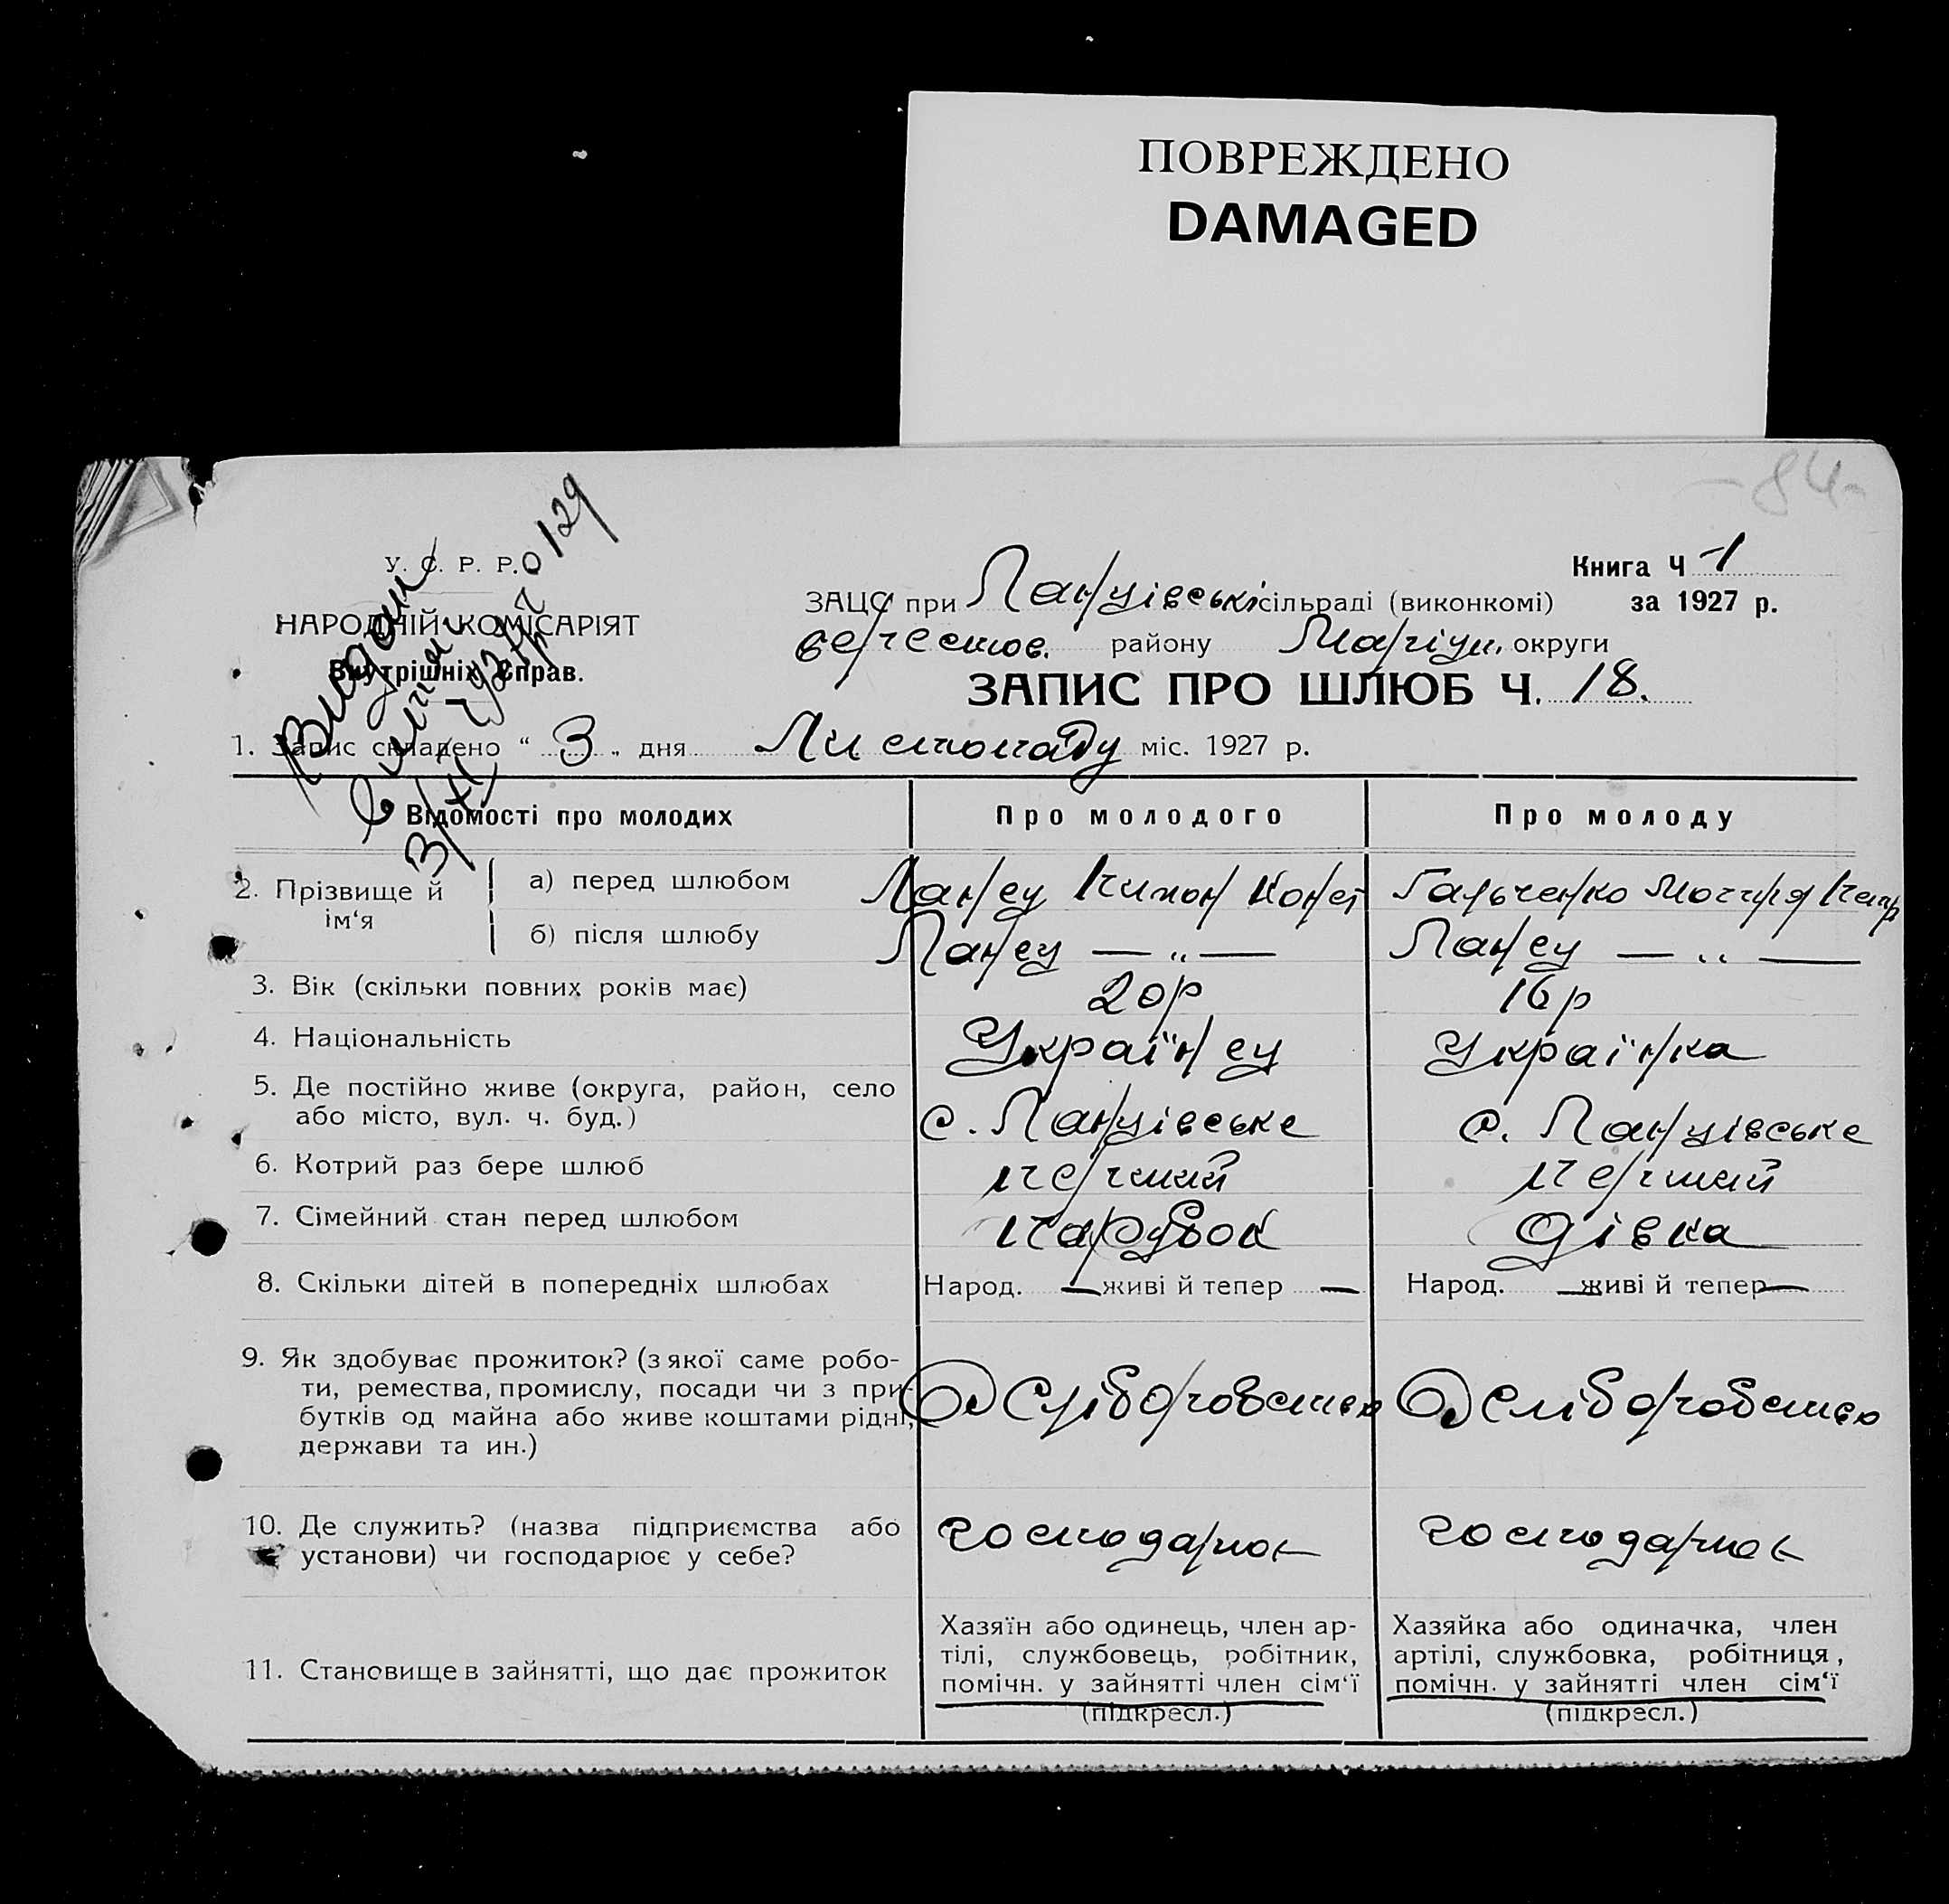 ПОВРЕЖДЕНО
DAMAGED
-84-
У. С. Р. Р.
НАРОДНІЙ КОМІСАРІЯТ
Внутрішніх Справ.
Книга Ч 1
за 1927 р.
ЗАЦС при Ланцівські сільраді (виконкомі)
району Маріуп. округи
ЗАПИС ПРО ШЛЮБ Ч. 18.
1. Запис складено “ 3 „ дня Листопаду міс. 1927 р.
Відомості про молодих
Про молодого
Про молоду
2. Прізвище й ім‘я
а) перед шлюбом
Ланец
Гальченко
б) після шлюбу
Ланец — „ —
Ланец — „ —
3. Вік (скільки повних років має)
20р
16р
4. Національність
Українец
Українка
5. Де постійно живе (округа, район, село
або місто, вул. ч. буд.)
с. Ланцівське
с. Ланцівське
6. Котрий раз бере шлюб
перший
перший
7. Сімейний стан перед шлюбом
парубок
дівка
8. Скільки дітей в попередніх шлюбах
Народ. — живі й тепер —
Народ. — живі й тепер —
9. Як здобуває прожиток? (з якої саме робо-
ти, ремества, промислу, посади чи з при-
бутків од майна або живе коштами рідні,
держави та ин.)
Од хліборобства
Од хліборобства
10. Де служить? (назва підприємства або
установи) чи господарює у себе?
господарює
господарює
11. Становище в зайнятті, що дає прожиток
Хазяїн або одинець, член ар-
тілі, службовець, робітник,
помічн. у зайнятті член сім‘ї
(підкресл.)
Хазяйка або одиначка, член
артілі, службовка, робітниця,
помічн. у зайнятті член сім‘ї
(підкресл.)